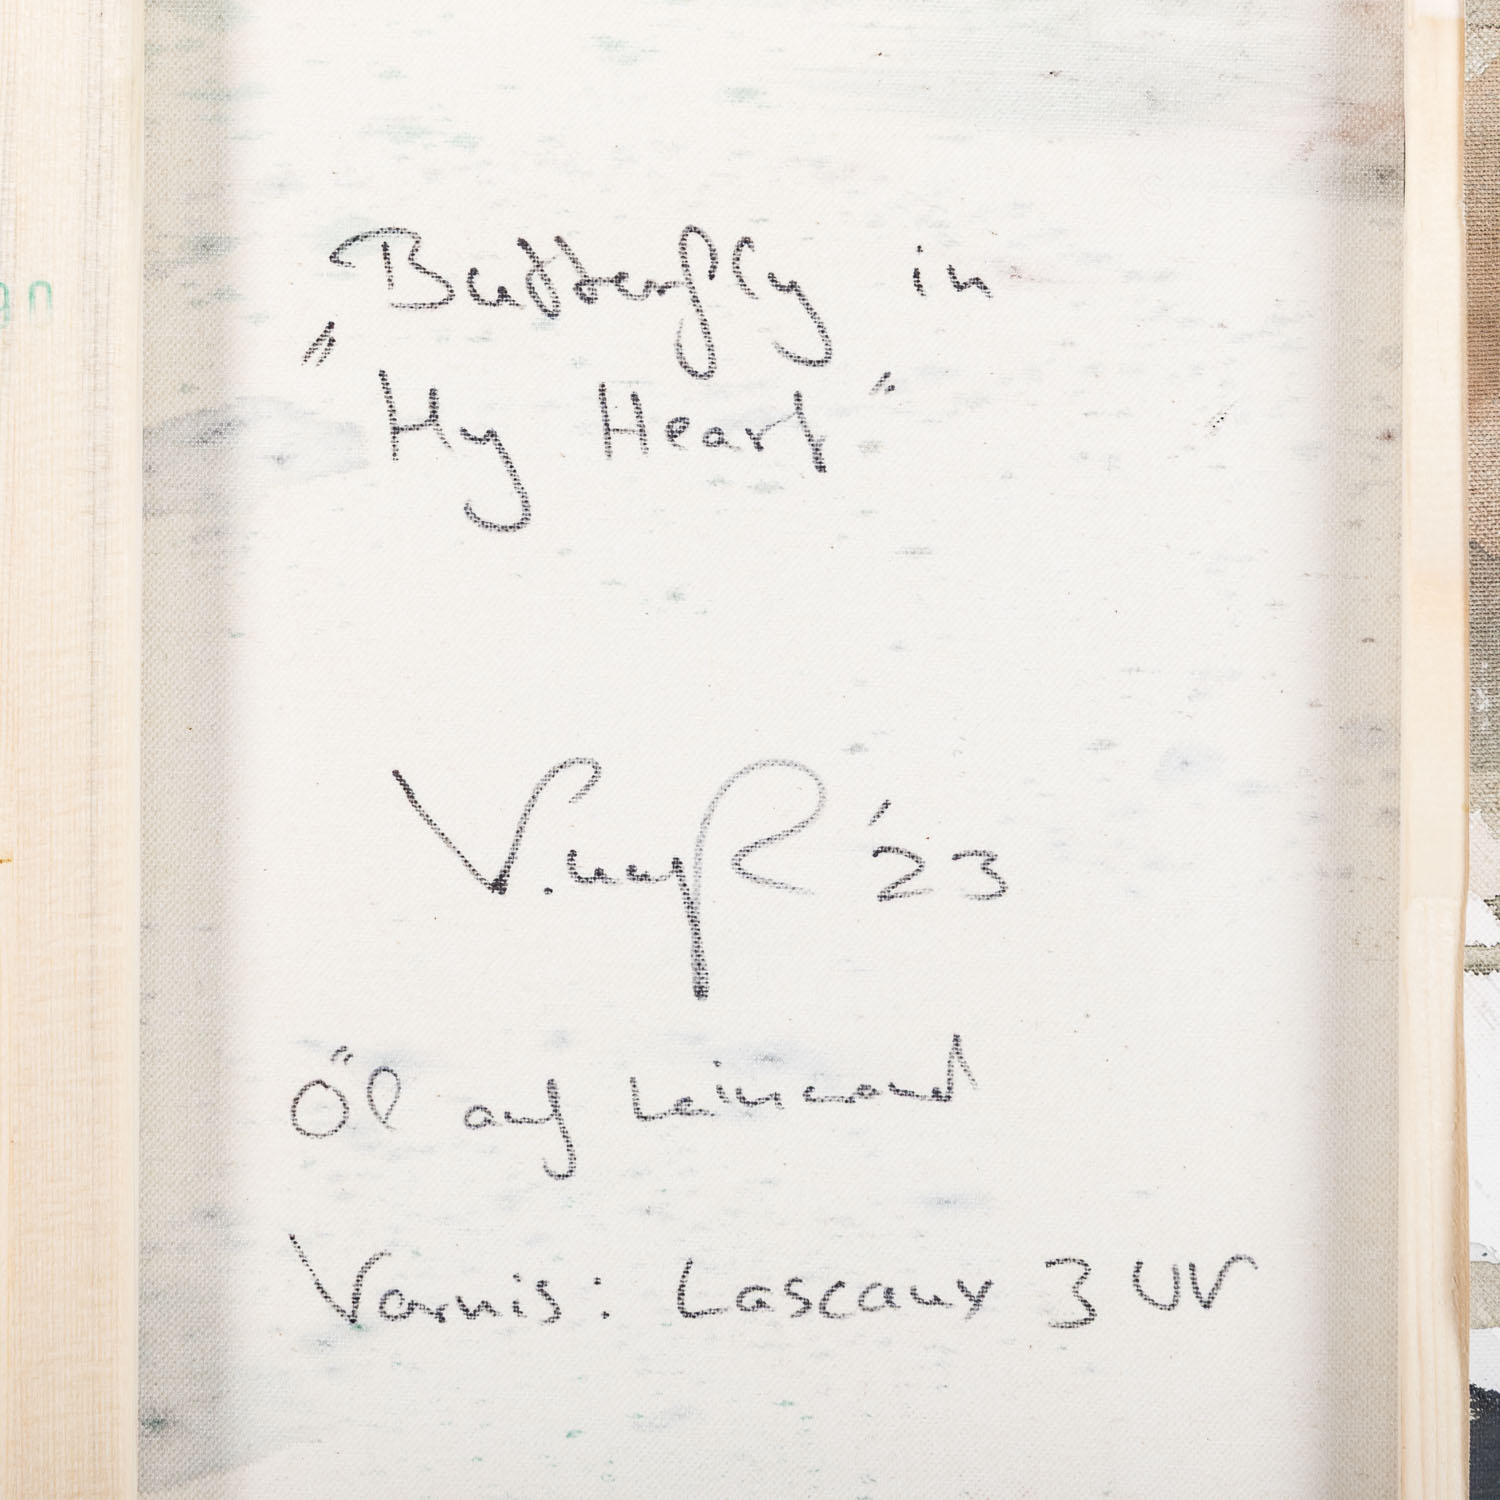 "Butterfly in
My Heart"
'23
Öl auf Leinwand
Varnis: Lascaux 3 UV